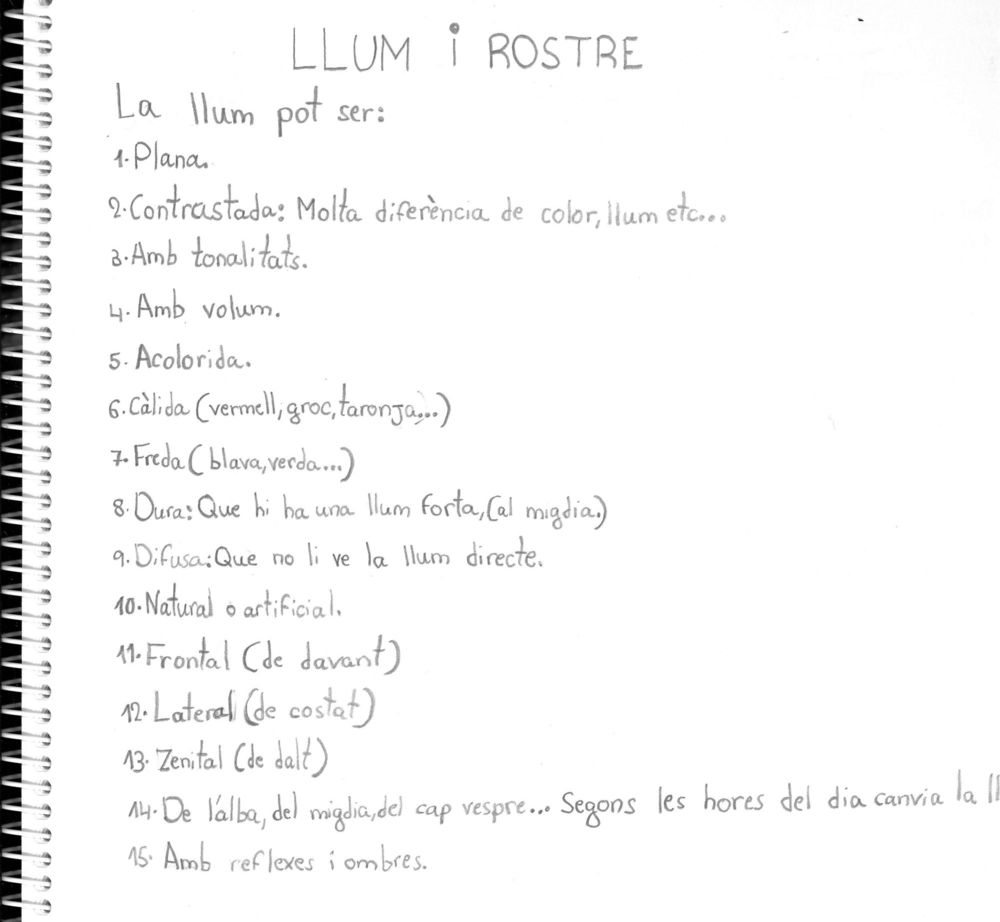 LLUM i ROSTRE
La llum pot ser:
1. Plana.
2. Contrastada: Molta diferència de color, llum etc...
3. Amb tonalitats.
4. Amb volum.
5. Acolorida.
6. Càlida (vermell, groc, taronja...)
7. Freda (blava, verda...)
8. Dura: Que hi ha una llum forta, (al migdia.)
9. Difusa: Que no li ve la llum directe.
10. Natural o artificial.
11. Frontal (de davant)
12. Lateral (de costat)
13. Zenital (de dalt)
14. De l'alba, del migdia, del cap vespre... Segons les hores del dia canvia la ll
15. Amb reflexes i ombres.